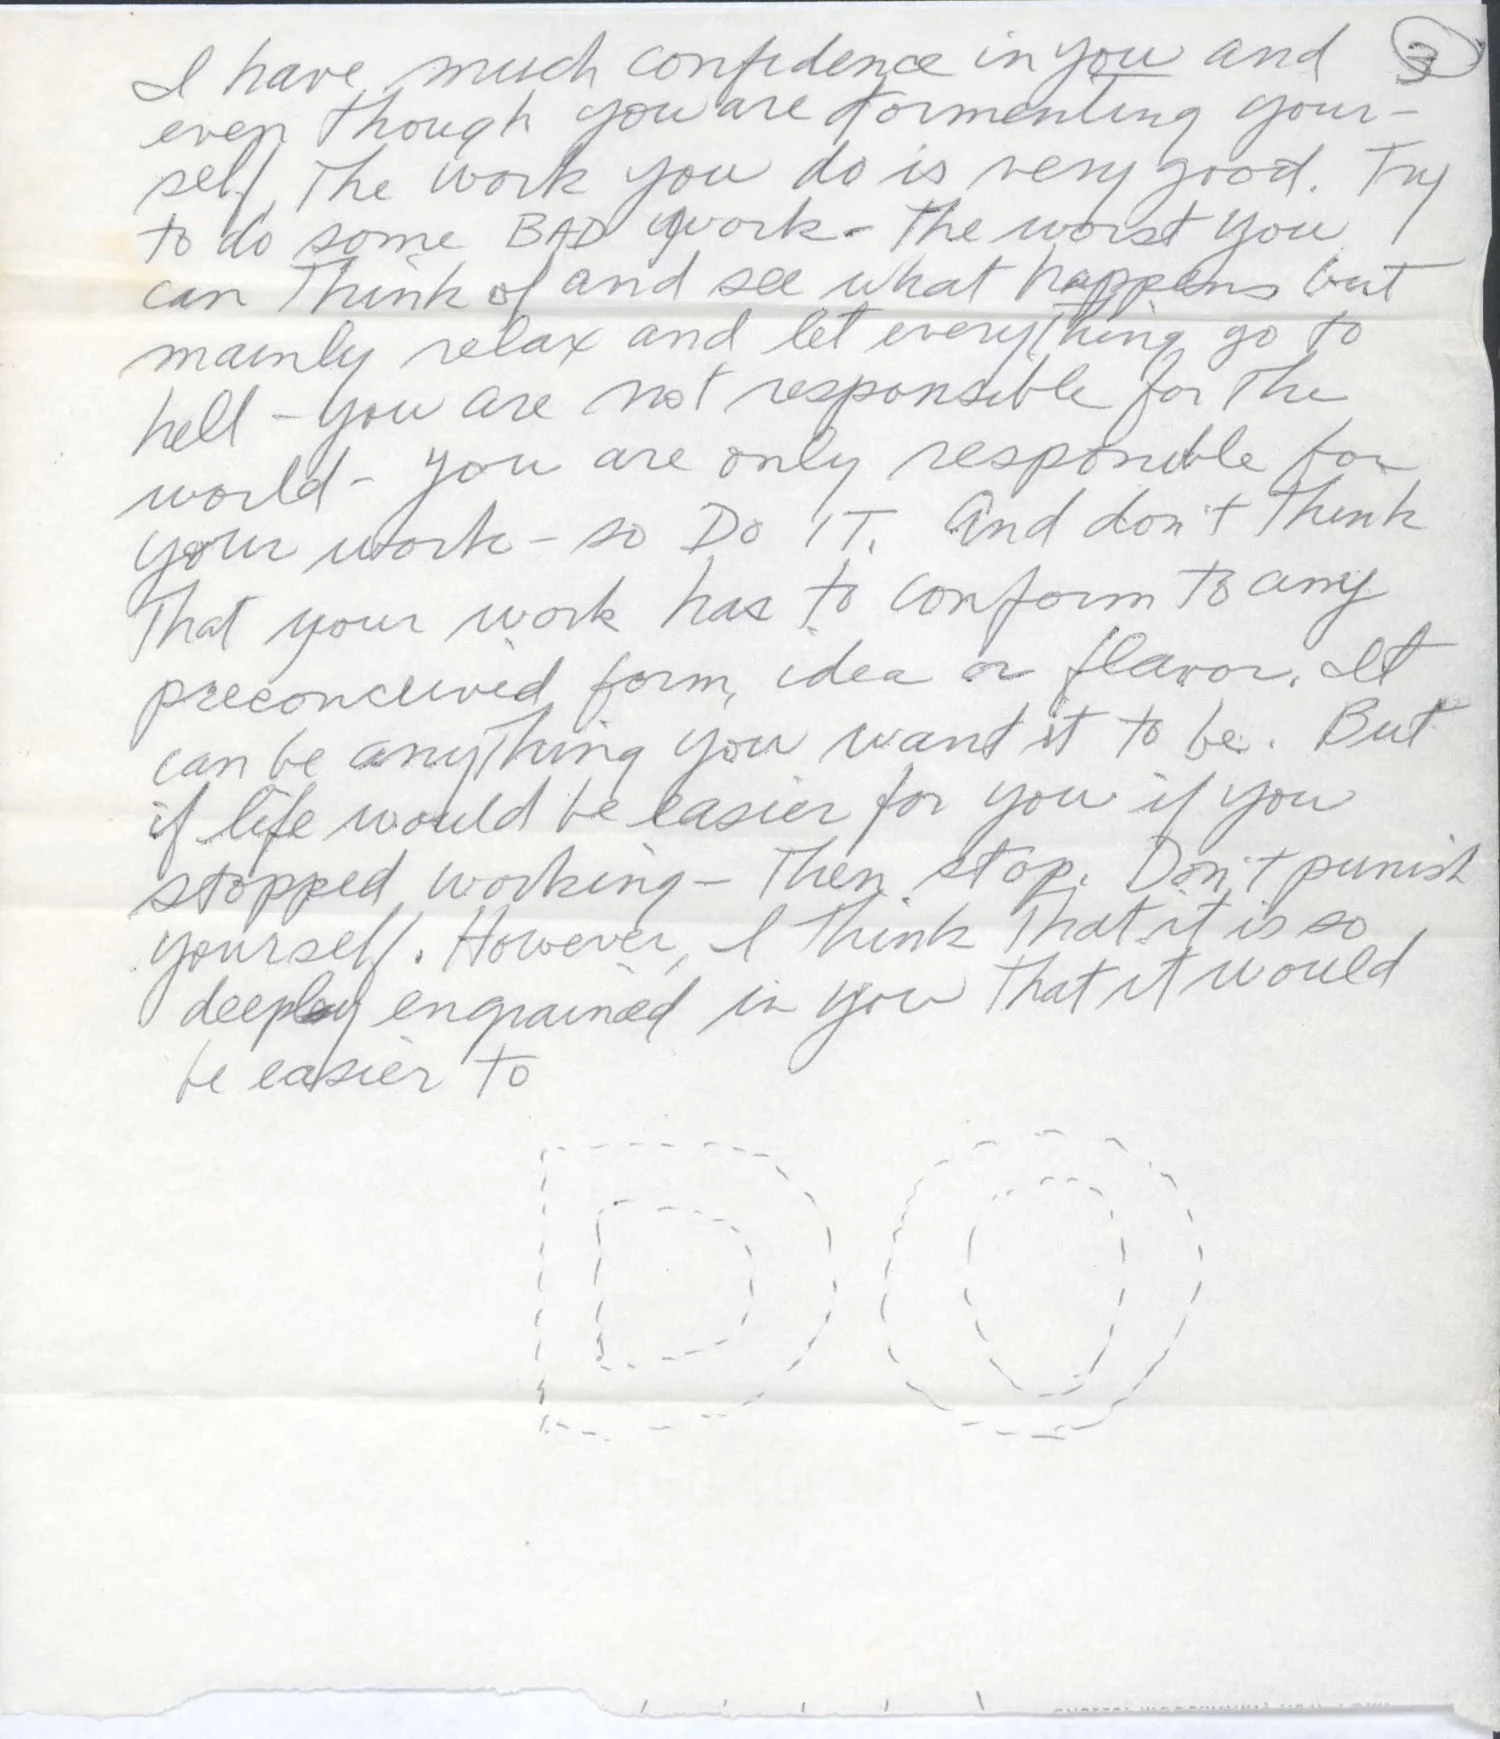 3
I have much confidence in you and
even though you are tormenting your-
self, The work you do is very good. Try
to do some BAD work - The worst you
can Think of and see what happens but
mainly relax and let everything go to
hell - you are not responsible for The
world - you are only responsible for
your work - so DO IT. And don't Think
That your work has to conform to any
preconceived form, idea or flavor. It
can be anything you want it to be. But
if life would be easier for you if you
stopped working - Then stop. Don't punish
yourself. However, I Think That it is so
deeply engrained in you That it would
be easier to
DO